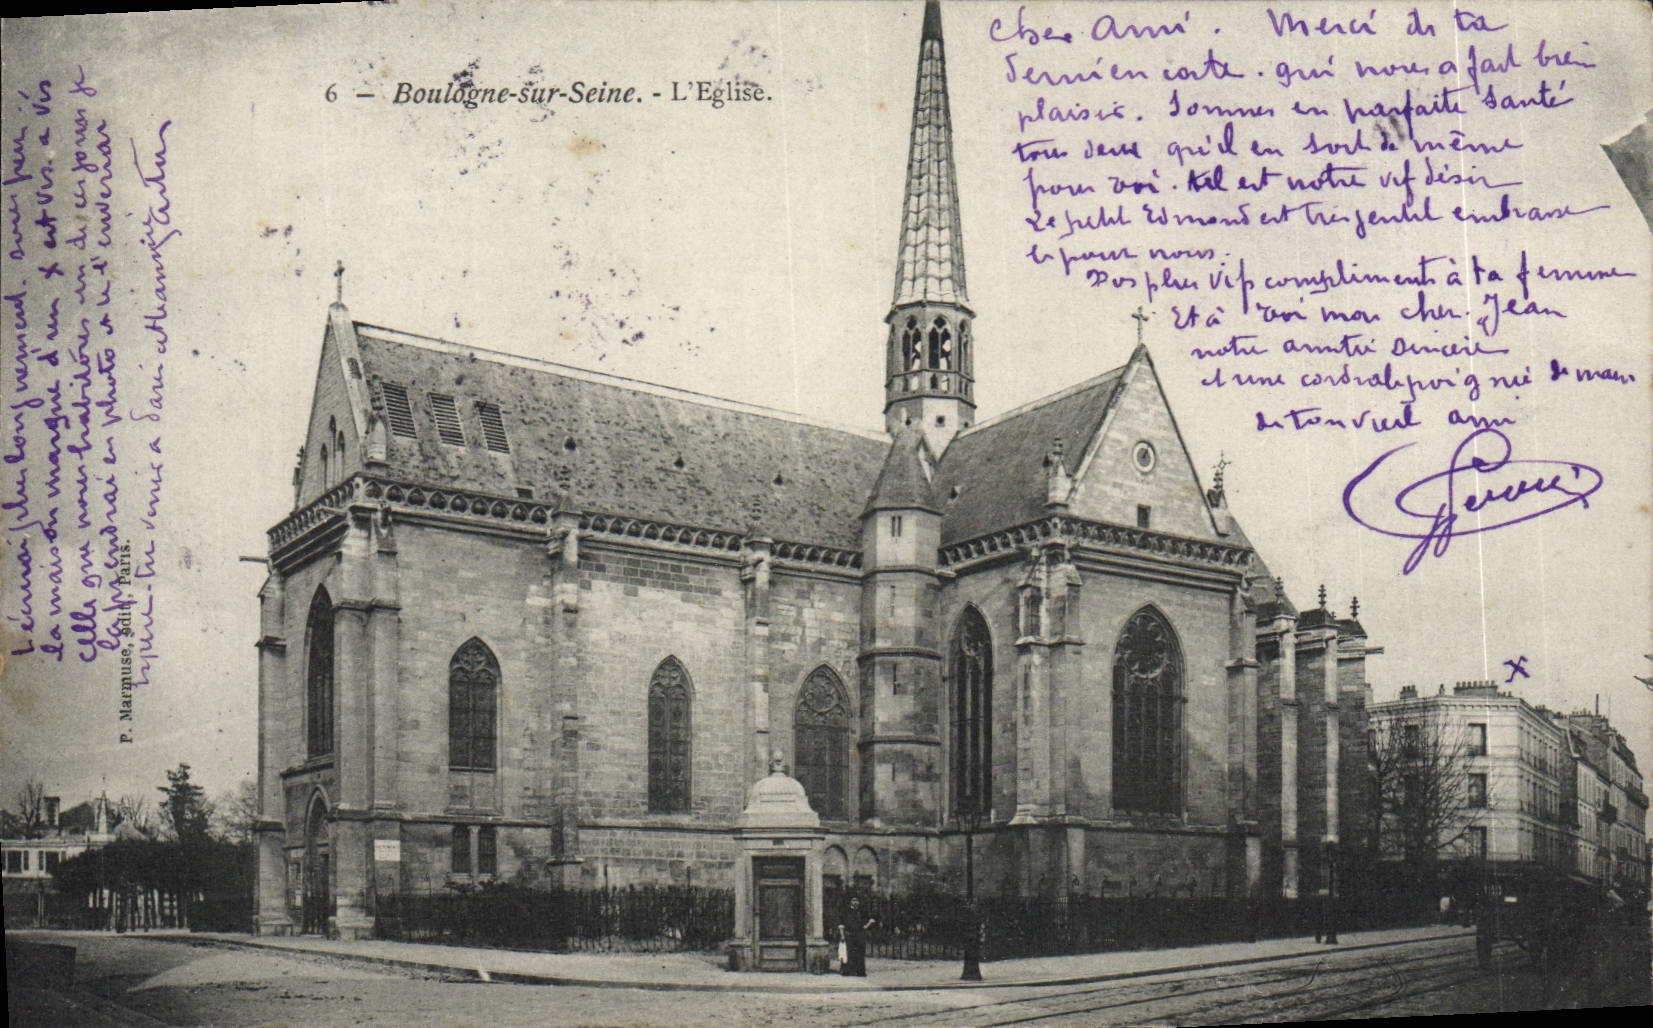 6 — Boulogne-sur-Seine. - L'Eglise.
Cher Ami. Merci de ta
dernière carte. qui nous a fait bien
plaisir. Sommes en parfaite santé
tous deux qu'il en soit de même
pour toi. tel est notre vif désir
Le petit Edmond est très gentil embrasse
le pour nous.
Nos plus vifs compliments à ta femme
Et à toi mon cher Jean
notre amitié sincère
et une cordiale poignée de main
de ton vieil ami
X
T'écrirai plus longuement sous peu
la maison marquée d'un X est vis à vis
celle que nous habitons un de ces jours je
la prendrai en photo et te l'enverrai
P. Marmuse, édit., Paris.